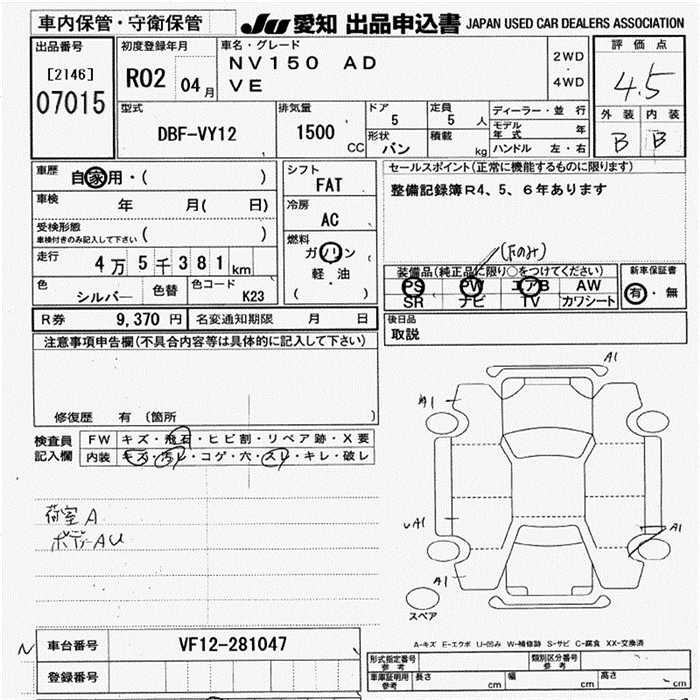 車内保管・守衛保管
JU 愛知 出品申込書 JAPAN USED CAR DEALERS ASSOCIATION
出品番号
[2146]
07015
初度登録年月
R02 04月
車名・グレード
NV150 AD
VE
2WD
・
4WD
評価点
4.5
外装 内装
B B
型式
DBF-VY12
排気量
1500 CC
ドア
5
定員
5 人
形状
バン
積載
kg
ディーラー・並行
モデル年式 年
ハンドル 左・右
車歴
自家用・( )
車検
年 月( 日)
受検形態
車検付きのみ記入して下さい ( )
走行
4万5千381km
色
シルバー
色替
色コード
K23
シフト
FAT
冷房
AC
燃料
ガソリン
軽・油
( )
セールスポイント(正常に機能するものに限ります)
整備記録簿R4、5、6年あります
(Fのみ)
装備品(純正品に限り○をつけてください)
PS PW エアB AW
SR ナビ TV カワシート
新車保証書
有・無
R券 9,370 円
名変通知期限 月 日
後日品
取説
注意事項申告欄(不具合内容等は具体的に記入して下さい)
修復歴 有 (箇所 )
検査員記入欄
FW キズ・飛石・ヒビ割・リペア跡・X要
内装 キズ・汚レ・コゲ・穴・スレ・キレ・破レ
荷室A
ボデーAU
A1
A1
A1
A1
スペア
A-キズ E-エクボ U-凹み W-補修跡 S-サビ C-腐食 XX-交換済
車台番号 VF12-281047
登録番号
形式指定番号参考
類別区分番号参考
車庫証明用参考
長さ cm
幅 cm
高さ cm